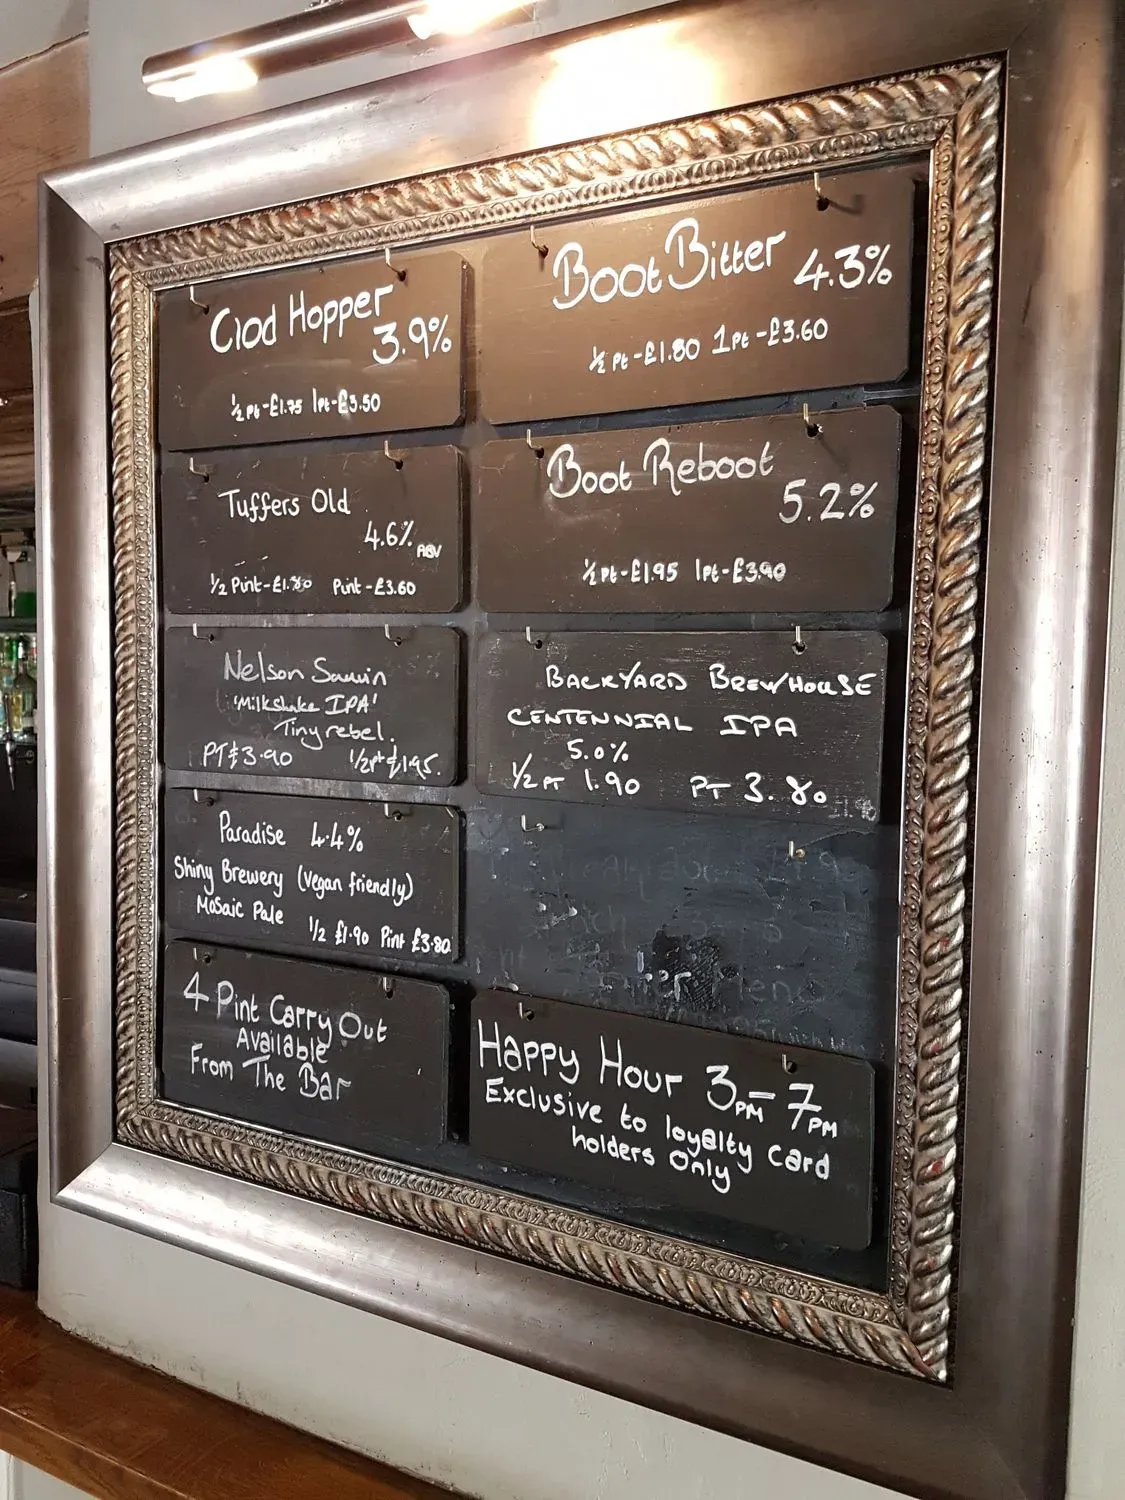 Clod Hopper
3.9%
½ pt - £1.75 1pt - £3.50
Boot Bitter 4.3%
½ pt - £1.80 1pt - £3.60
Tuffers Old
4.6% ABV
1/2 Pint - £1.80 Pint - £3.60
Boot Reboot
5.2%
½ pt - £1.95 1pt - £3.90
Nelson Sauvin
'Milkshake IPA'
Tiny rebel.
PT £3.90 1/2pt £1.95.
BACKYARD BREWHOUSE
CENTENNIAL IPA
5.0%
1/2 PT 1.90 PT 3.80
Paradise 4.4%
Shiny Brewery (Vegan friendly)
Mosaic Pale
1/2 £1.90 Pint £3.80
4 Pint Carry Out
Available
From The Bar
Happy Hour 3PM - 7PM
Exclusive to loyalty card
holders Only